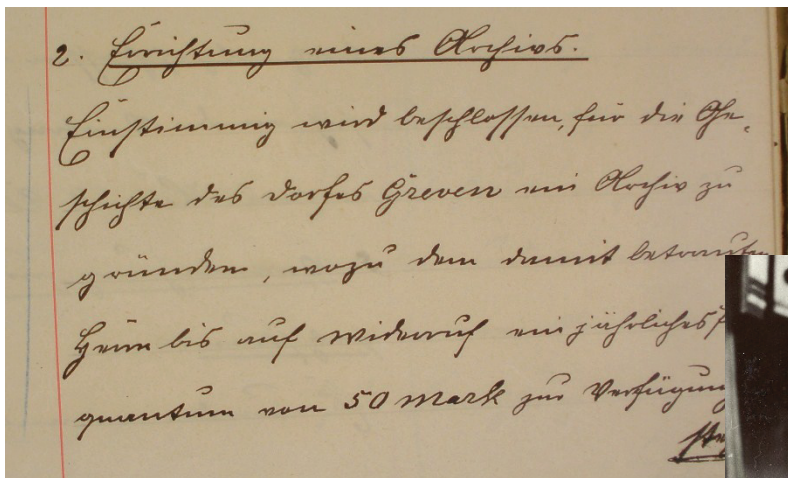 2. Errichtung eines Archivs.
Einstimmig wird beschlossen, für die Ge-
schichte des Dorfes Greven ein Archiv zu
gründen, wozu dem damit betrauten
Herrn bis auf Widerruf ein jährliches
quantum von 50 Mark zur Verfügung